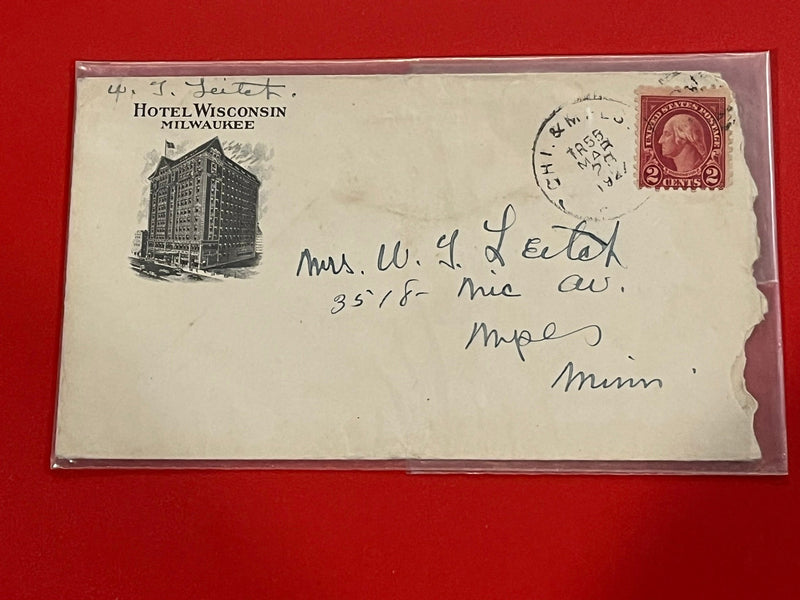 W. J. Leitch.
HOTEL WISCONSIN
MILWAUKEE
CHI. & MPLS.
TR 55
MAR
1927
UNITED STATES POSTAGE
2 CENTS 2
Mrs. W. J. Leitch
3518- Nic av.
Mpls
Minn.